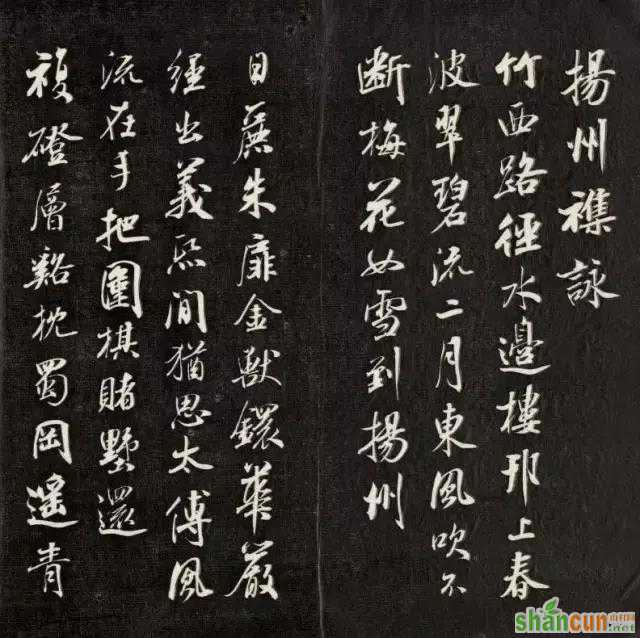 揚州襍詠
竹西路徑水邊樓邗上春
波翠碧流二月東風吹不
斷梅花如雪到揚州
朱扉金獸鐶華嚴
經出義熙間猶思太傅風
流在手把圍棋賭墅還
複磴層谿枕蜀岡遙青
shancun
.net